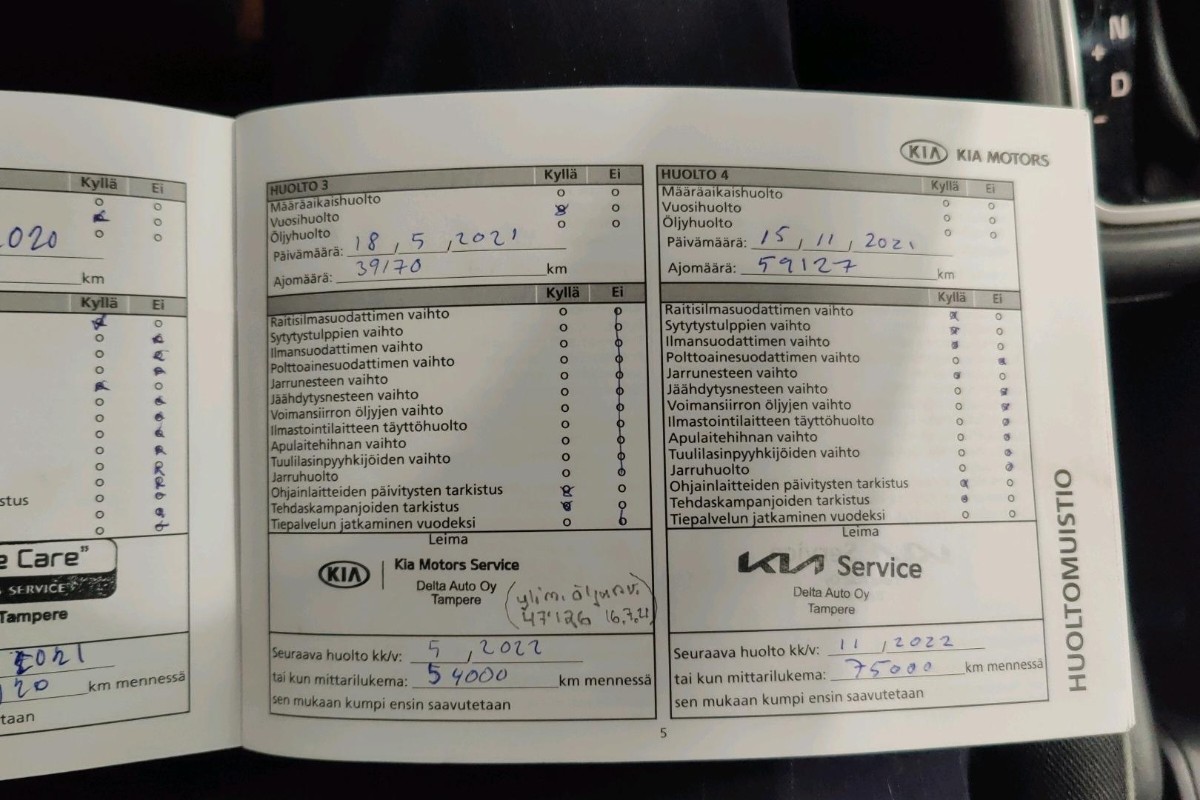 N
+
D
-
Kyllä Ei
2020
km
Kyllä Ei
stus
e Care"
SERVICE
Tampere
2021
20 km mennessä
taan
KIA KIA MOTORS
HUOLTO 3 Kyllä Ei
Määräaikaishuolto
Vuosihuolto
Öljyhuolto
Päivämäärä: 18, 5, 2021
Ajomäärä: 39170 km
Kyllä Ei
Raitisilmasuodattimen vaihto
Sytytystulppien vaihto
Ilmansuodattimen vaihto
Polttoainesuodattimen vaihto
Jarrunesteen vaihto
Jäähdytysnesteen vaihto
Voimansiirron öljyjen vaihto
Ilmastointilaitteen täyttöhuolto
Apulaitehihnan vaihto
Tuulilasinpyyhkijöiden vaihto
Jarruhuolto
Ohjainlaitteiden päivitysten tarkistus
Tehdaskampanjoiden tarkistus
Tiepalvelun jatkaminen vuodeksi
Leima
KIA Kia Motors Service
Delta Auto Oy
Tampere
(ylim. öljynv.
47126 16.7.21)
Seuraava huolto kk/v: 5, 2022
tai kun mittarilukema: 54000 km mennessä
sen mukaan kumpi ensin saavutetaan
HUOLTO 4 Kyllä Ei
Määräaikaishuolto
Vuosihuolto
Öljyhuolto
Päivämäärä: 15, 11, 2021
Ajomäärä: 59127 km
Kyllä Ei
Raitisilmasuodattimen vaihto
Sytytystulppien vaihto
Ilmansuodattimen vaihto
Polttoainesuodattimen vaihto
Jarrunesteen vaihto
Jäähdytysnesteen vaihto
Voimansiirron öljyjen vaihto
Ilmastointilaitteen täyttöhuolto
Apulaitehihnan vaihto
Tuulilasinpyyhkijöiden vaihto
Jarruhuolto
Ohjainlaitteiden päivitysten tarkistus
Tehdaskampanjoiden tarkistus
Tiepalvelun jatkaminen vuodeksi
Leima
KIA Service
Delta Auto Oy
Tampere
Seuraava huolto kk/v: 11, 2022
tai kun mittarilukema: 75000 km mennessä
sen mukaan kumpi ensin saavutetaan
HUOLTOMUISTIO
5